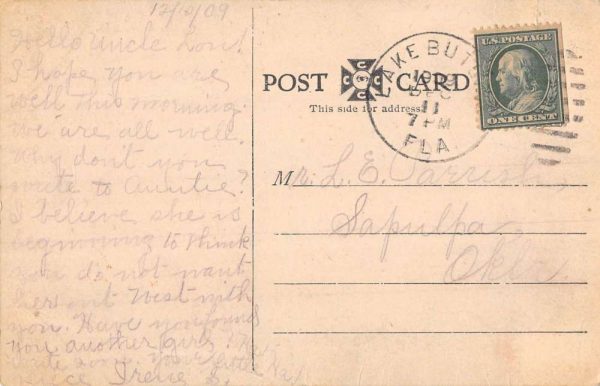 12/10/09
Hello Uncle Lon!
I hope you are
well this morning.
We are all well.
Why don't you
write to Auntie?
I believe she is
beginning to think
you do not want
her out West with
you. Have you found
you another girl?
write soon. your
niece Irene
POST CARD
This side for address
LAKE BUTLER
DEC
11
7 PM
FLA
U.S. POSTAGE
ONE CENT
Mr. L. E. Parrish
Sapulpa
Okla.